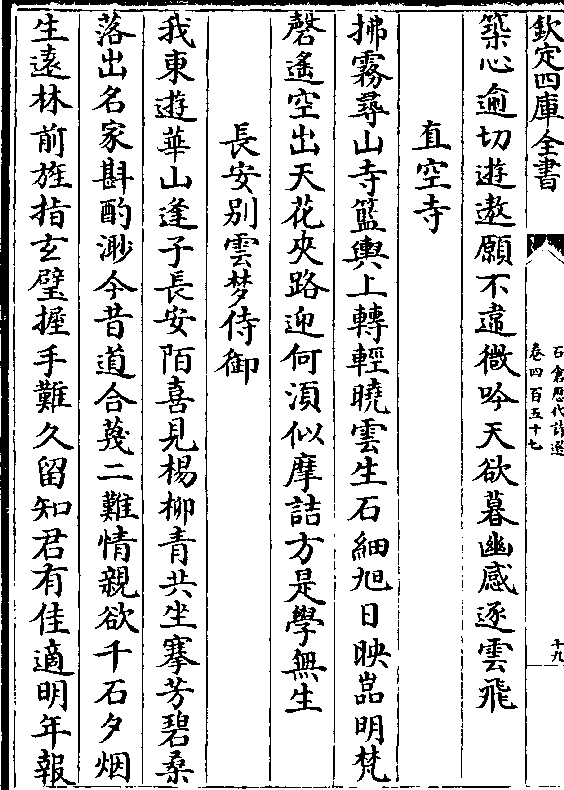 欽定四庫全書
石倉歴代詩選
卷四百五十七
十九
築心逾切遊遨願不違微吟天欲暮幽感逐雲飛
直空寺
拂霧尋山寺籃輿上轉輕曉雲生石細旭日映嵓明梵
磬遙空出天花夾路迎何須似摩詰方是學無生
長安别雲梦侍御
我東遊華山逢子長安陌喜見楊柳青共坐搴芳碧桑
落出名家斟酌渺今昔道合蔑二難情親欲千石夕烟
生遠林前旌指玄壁握手難久留知君有佳適明年報